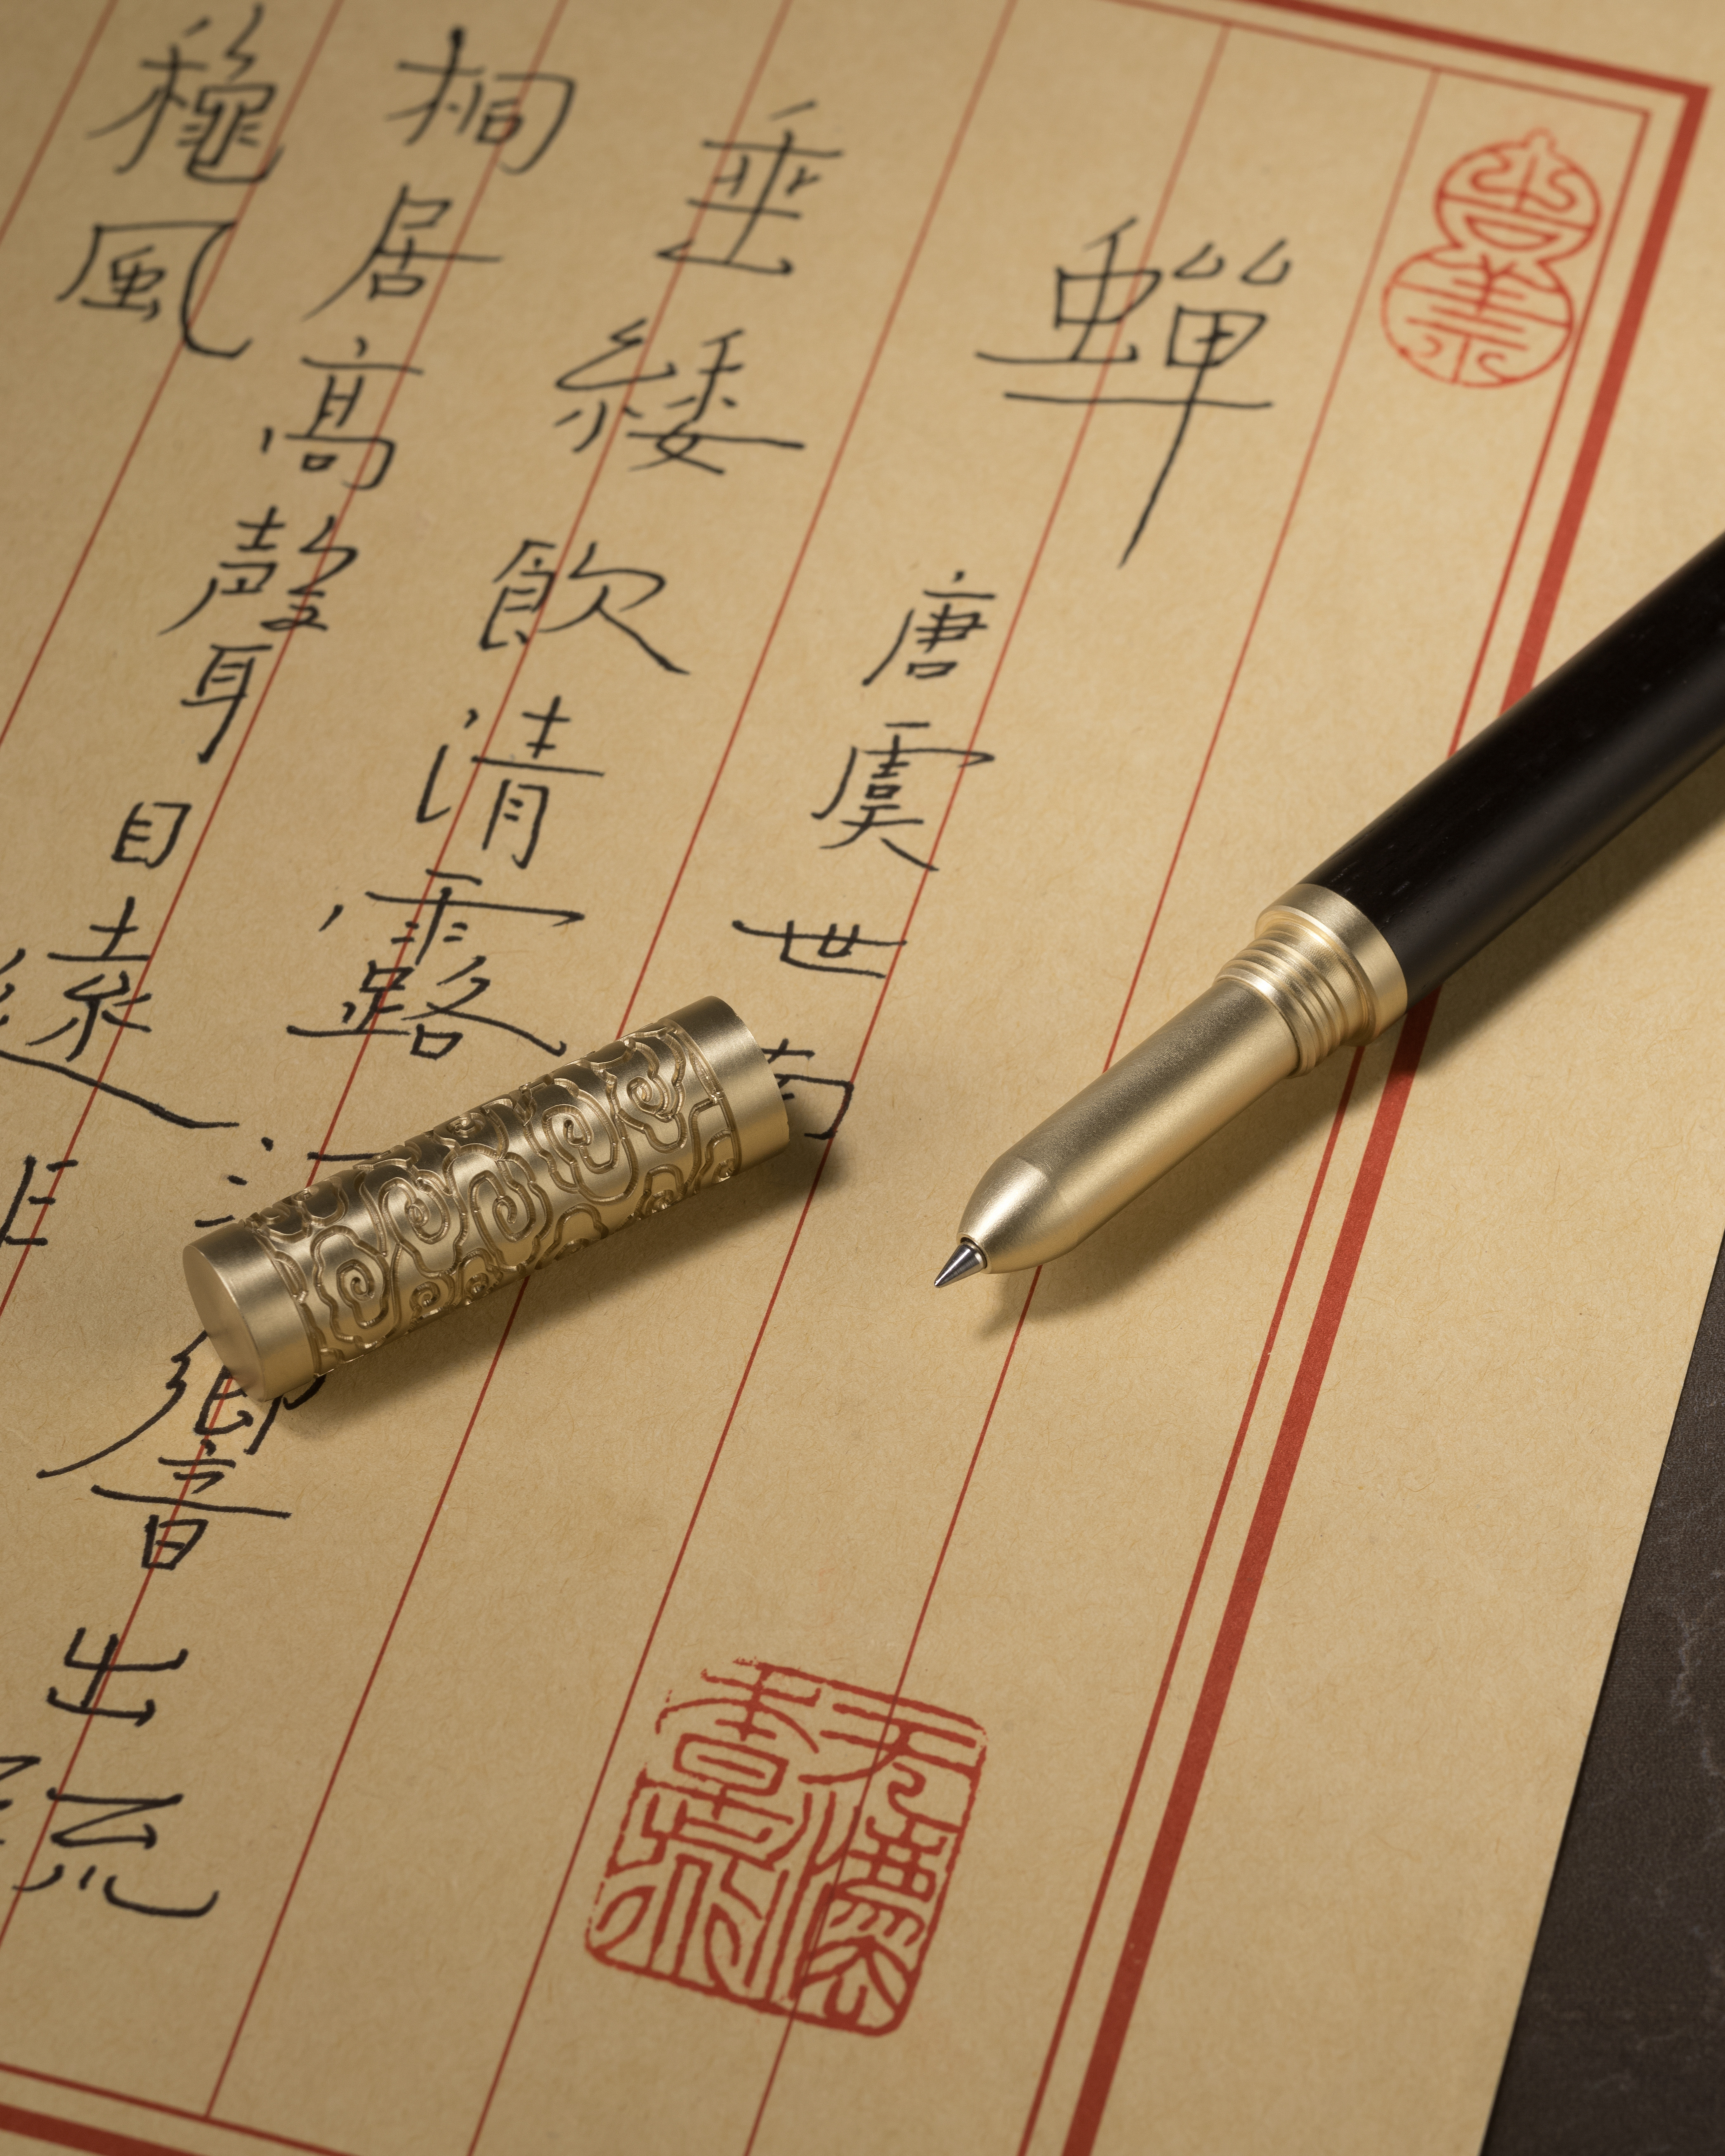 蟬
唐 虞世南
垂緌飲清露響出疏
桐居高聲自遠非
穐風